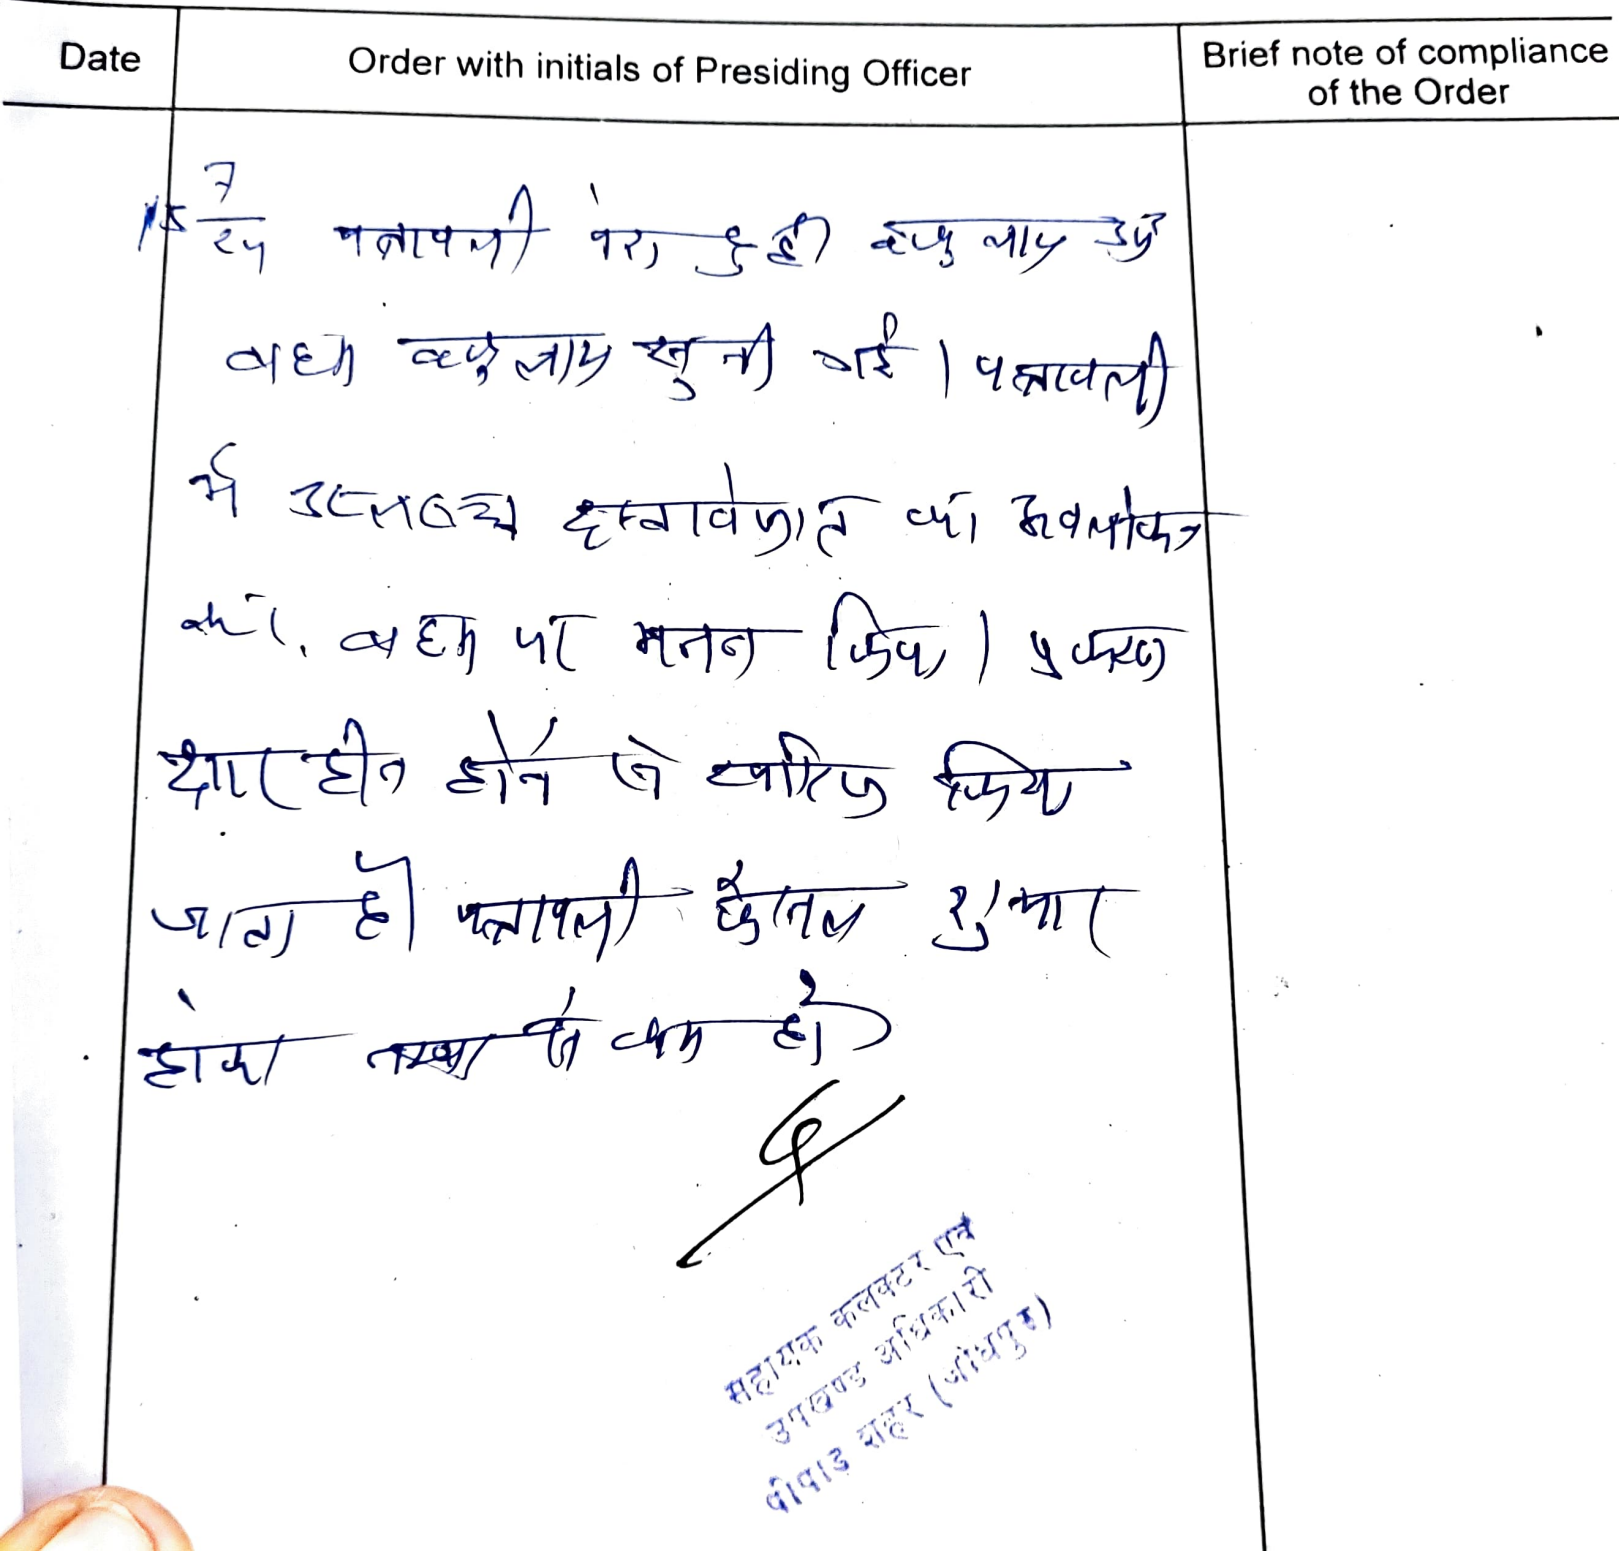 Date Order with initials of Presiding Officer Brief note of compliance of the Order
15/7/25 पत्रावली पेश हुई। वकुलाय उप॰
बहस वकुलाय सुनी गई। पत्रावली
में उपलब्ध दस्तावेजात का अवलोकन
कर बहस पर मनन किया। प्रकरण
सारहीन होने से खारिज किया
जाता है। पत्रावली फैसल शुमार
होकर नम्बर से कम हो।
सहायक कलक्टर एवं
उपखण्ड अधिकारी
पीपाड़ शहर (जोधपुर)